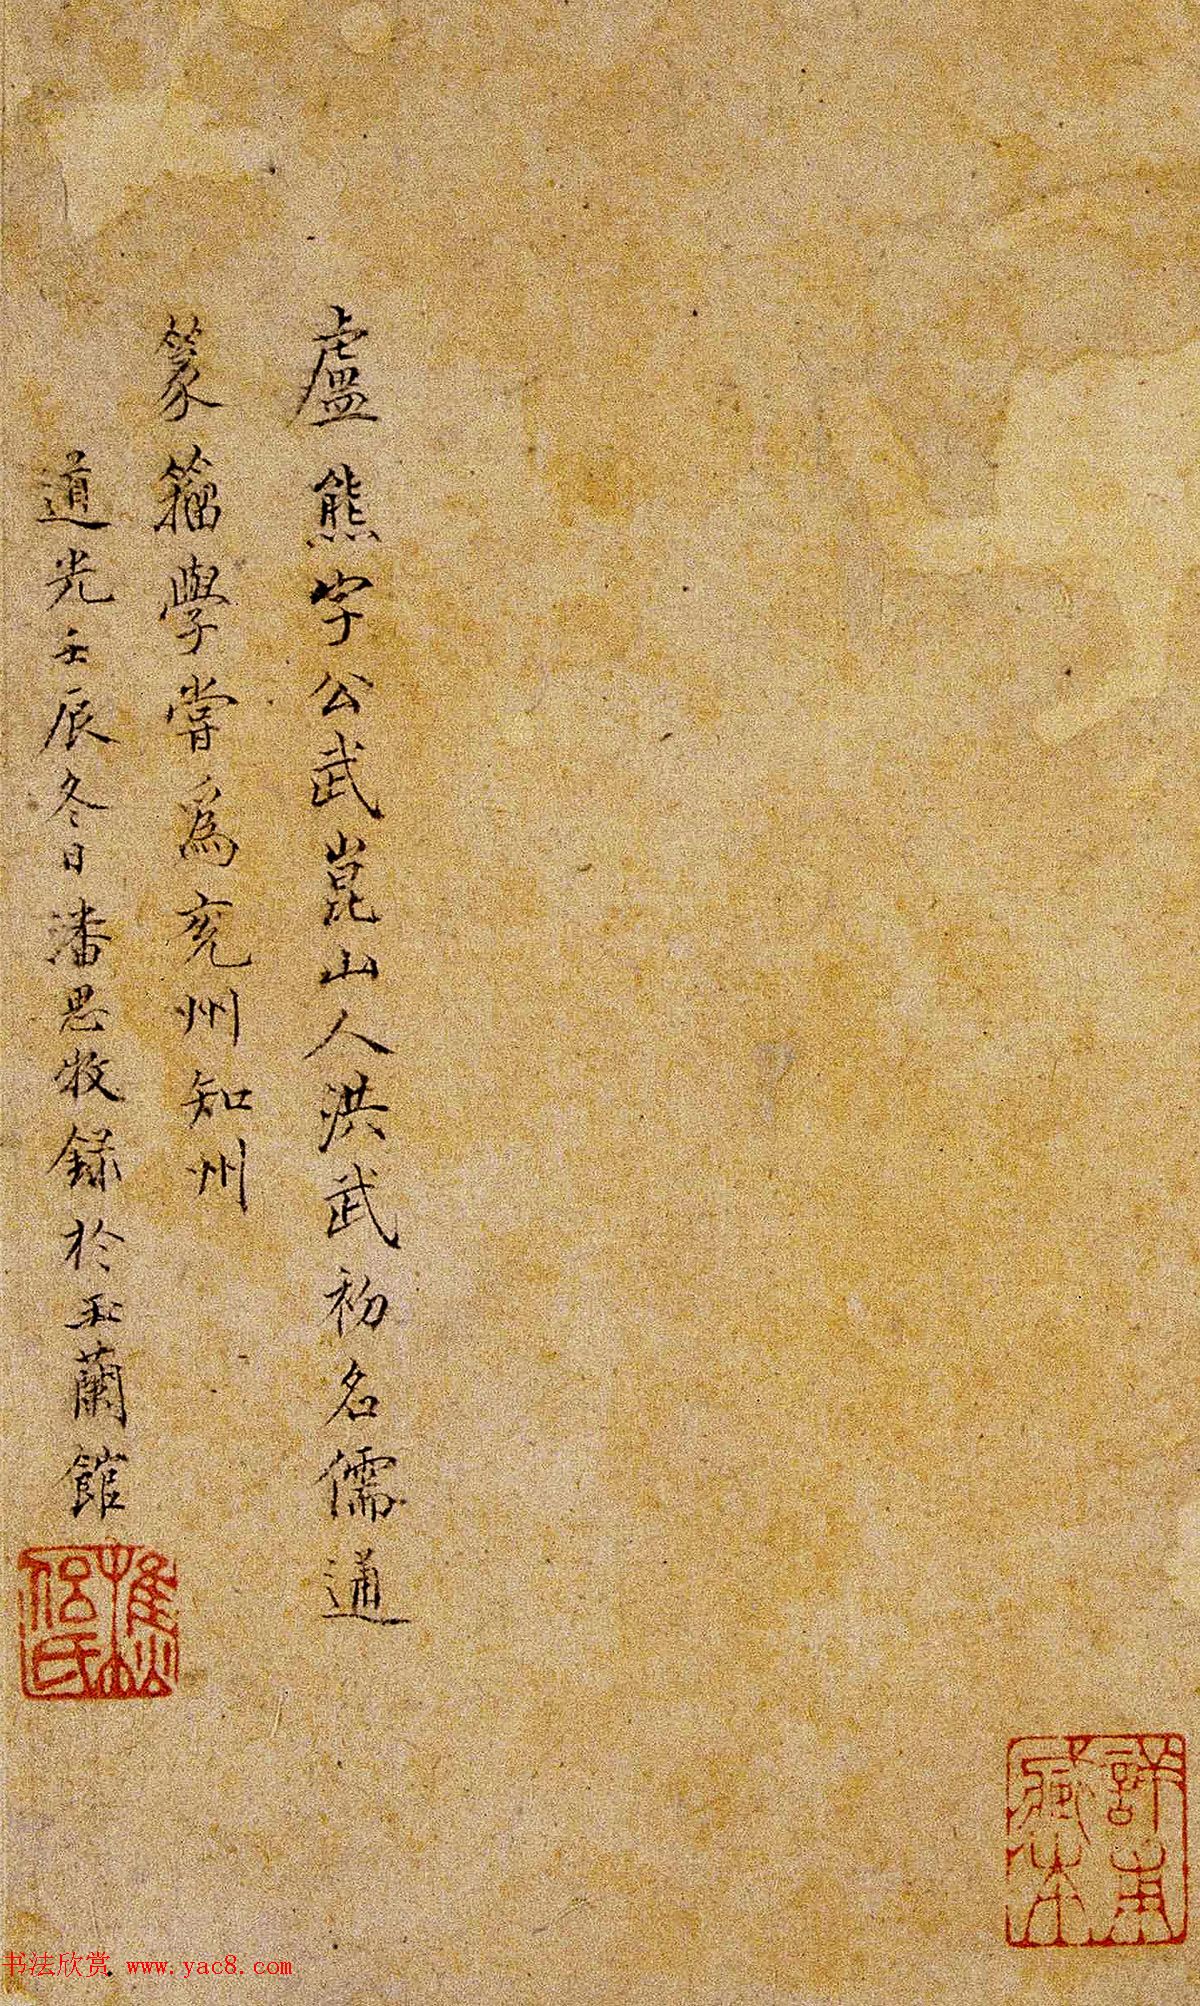 盧熊字公武崑山人洪武初名儒通
篆籀學嘗為兖州知州
道光壬辰冬日潘思牧録於玉蘭館
书法欣赏 www.yac8.com